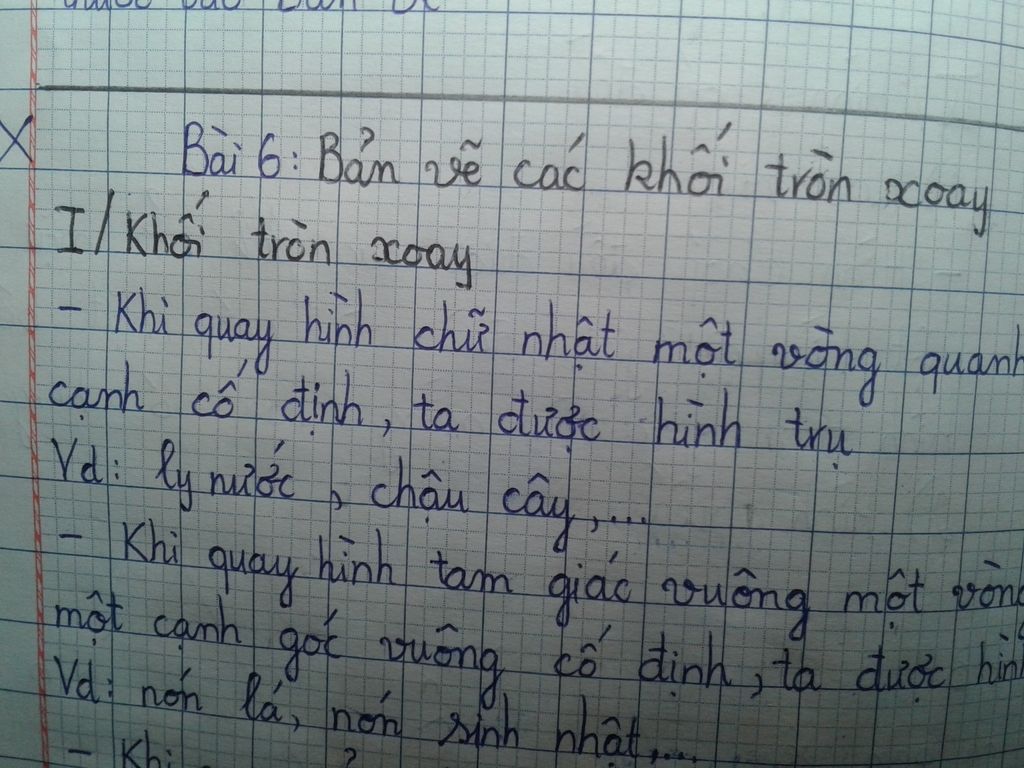 Bài 6: Bản vẽ các khối tròn xoay
I/ Khối tròn xoay
- Khi quay hình chữ nhật một vòng quanh
cạnh cố định, ta được hình trụ
Vd: ly nước, chậu cây,....
- Khi quay hình tam giác vuông một vòng
một cạnh góc vuông cố định, ta được hình
Vd: nón lá, nón sinh nhật,....
- Khi